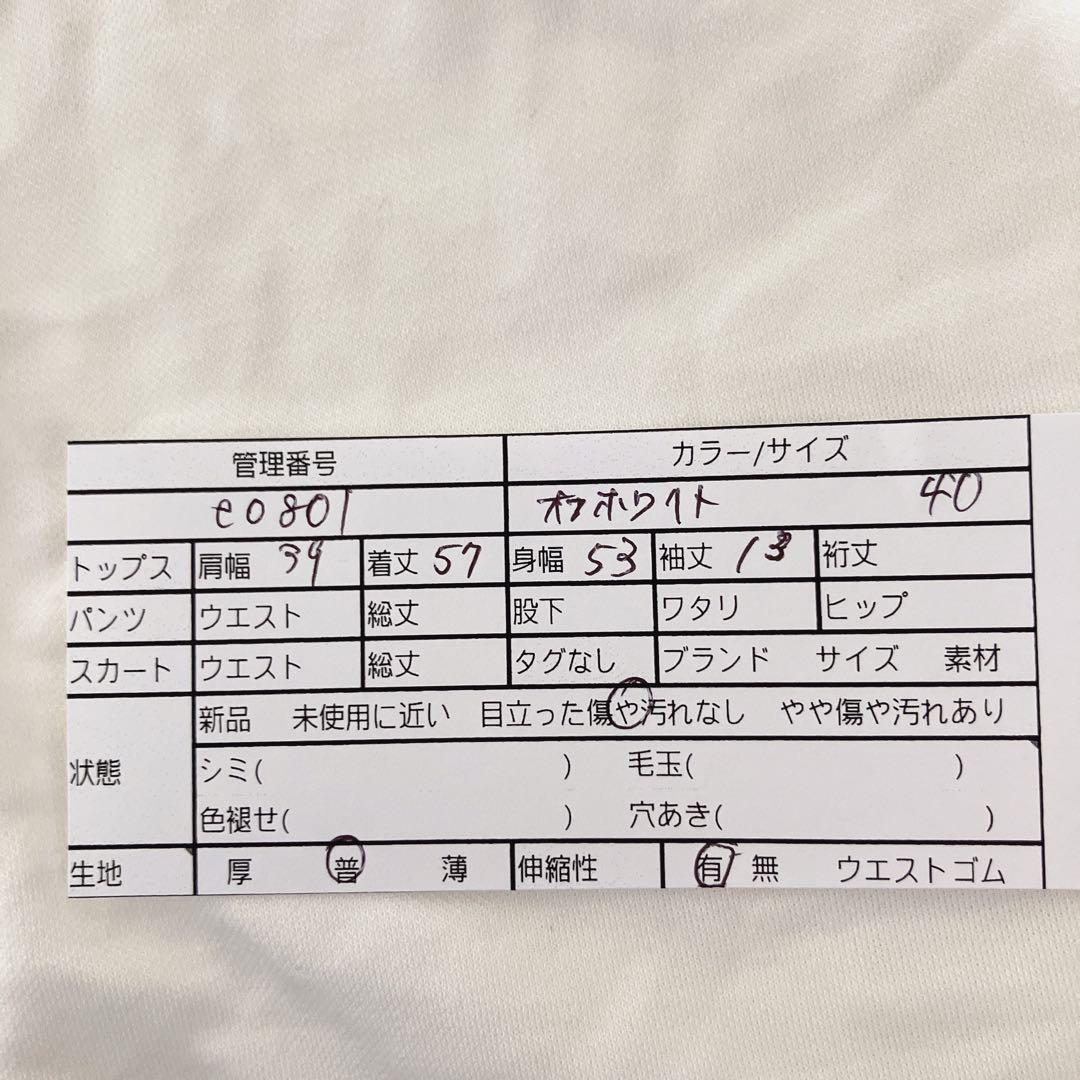 管理番号 カラー/サイズ
e0801 オフホワイト 40
トップス 肩幅 39 着丈 57 身幅 53 袖丈 13 裄丈
パンツ ウエスト 総丈 股下 ワタリ ヒップ
スカート ウエスト 総丈 タグなし ブランド サイズ 素材
状態 新品 未使用に近い 目立った傷や汚れなし やや傷や汚れあり
シミ( ) 毛玉( )
色褪せ( ) 穴あき( )
生地 厚 普 薄 伸縮性 有 無 ウエストゴム